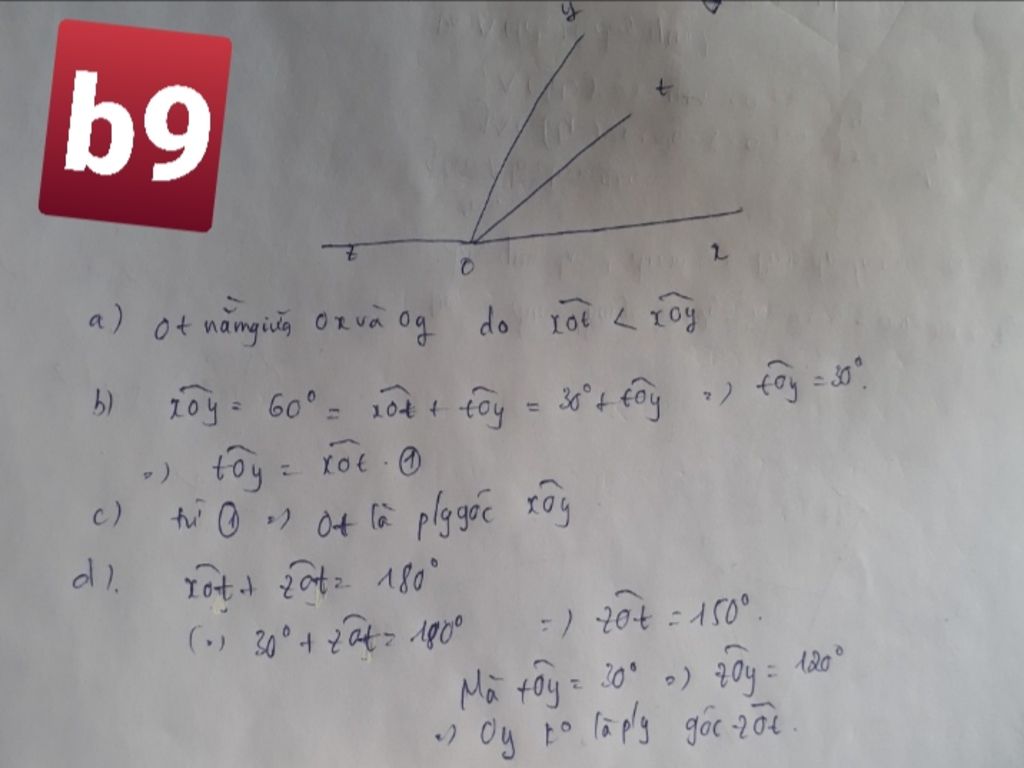 b9
y
t
z
O
x
a) Ot nằm giữa Ox và Og do xÔt < xÔy
b) xÔy = 60° = xÔt + tÔy = 30° + tÔy => tÔy = 30°.
=> tÔy = xÔt. ①
c) từ ① => Ot là p/g góc xÔy
d). xÔt + zÔt = 180°
(=) 30° + zÔt = 180° => zÔt = 150°.
Mà tÔy = 30° => zÔy = 120°
=> Oy ko là p/g góc zÔt.